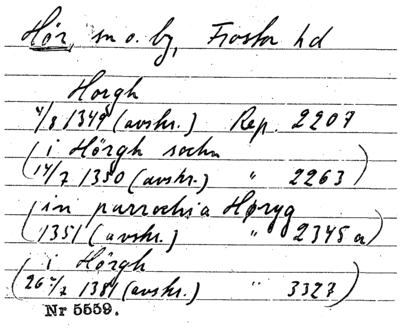 Hör, sn o. by, Frosta hd
Horgh
4/8 1349 (avskr.) Rep. 2207
(i Hörgh sochn
14/7 1350 (avskr.) " 2263)
(in parrochia Høryg
1351 (avskr.) " 2345 a)
(i Hörgh
26/7 1381 (avskr.) " 3327)
Nr 5559.